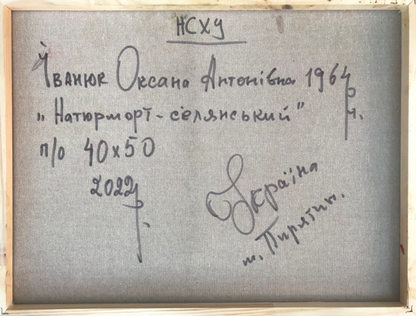 НСХУ
Іванюк Оксана Антонівна 1964 р.н.
„Натюрморт - селянський"
п/о 40х50
2022 р.
Україна
м. Пирятин.